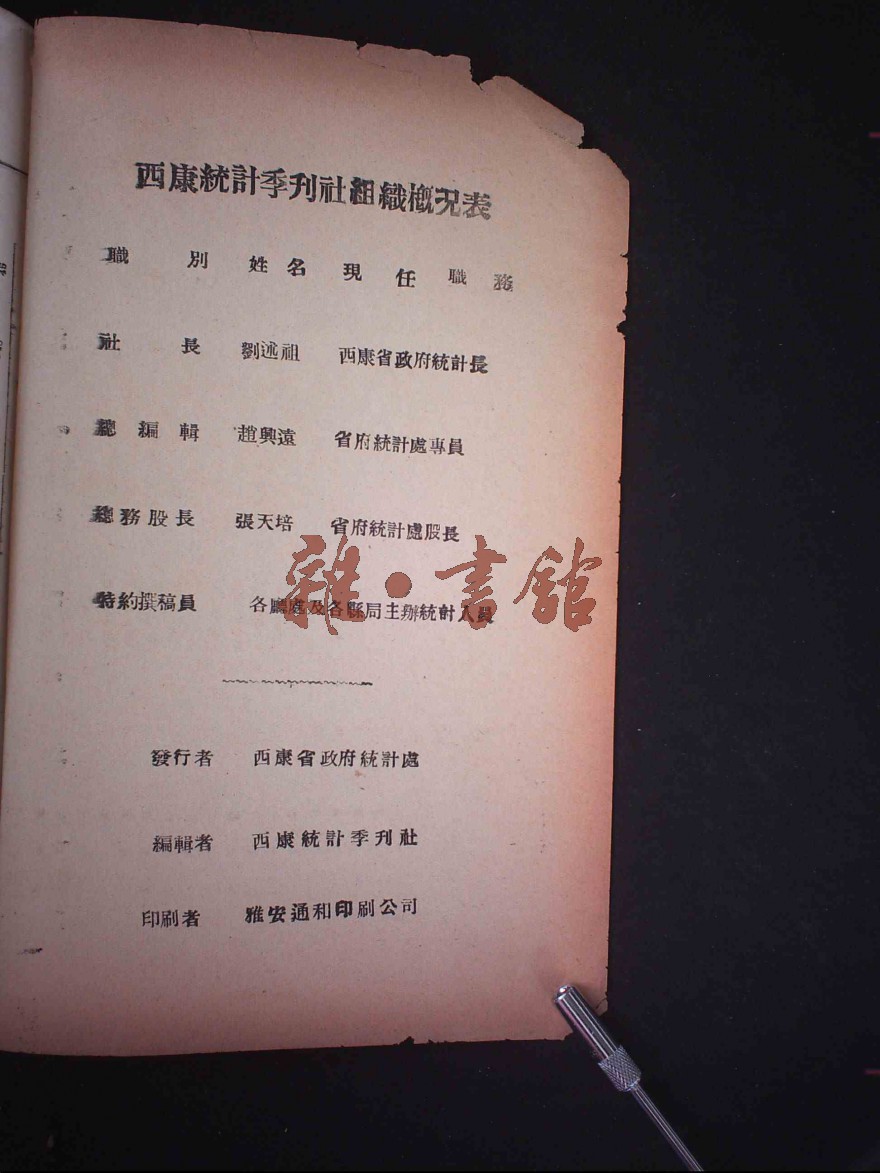 西康統計季刊社組織概況表
職別 姓名 現任職務
社長 劉述祖 西康省政府統計長
總編輯 趙興遠 省府統計處專員
總務股長 張天培 省府統計處股長
特約撰稿員 各廳處及各縣局主辦統計人員
雜·書館
發行者 西康省政府統計處
編輯者 西康統計季刊社
印刷者 雅安通和印刷公司